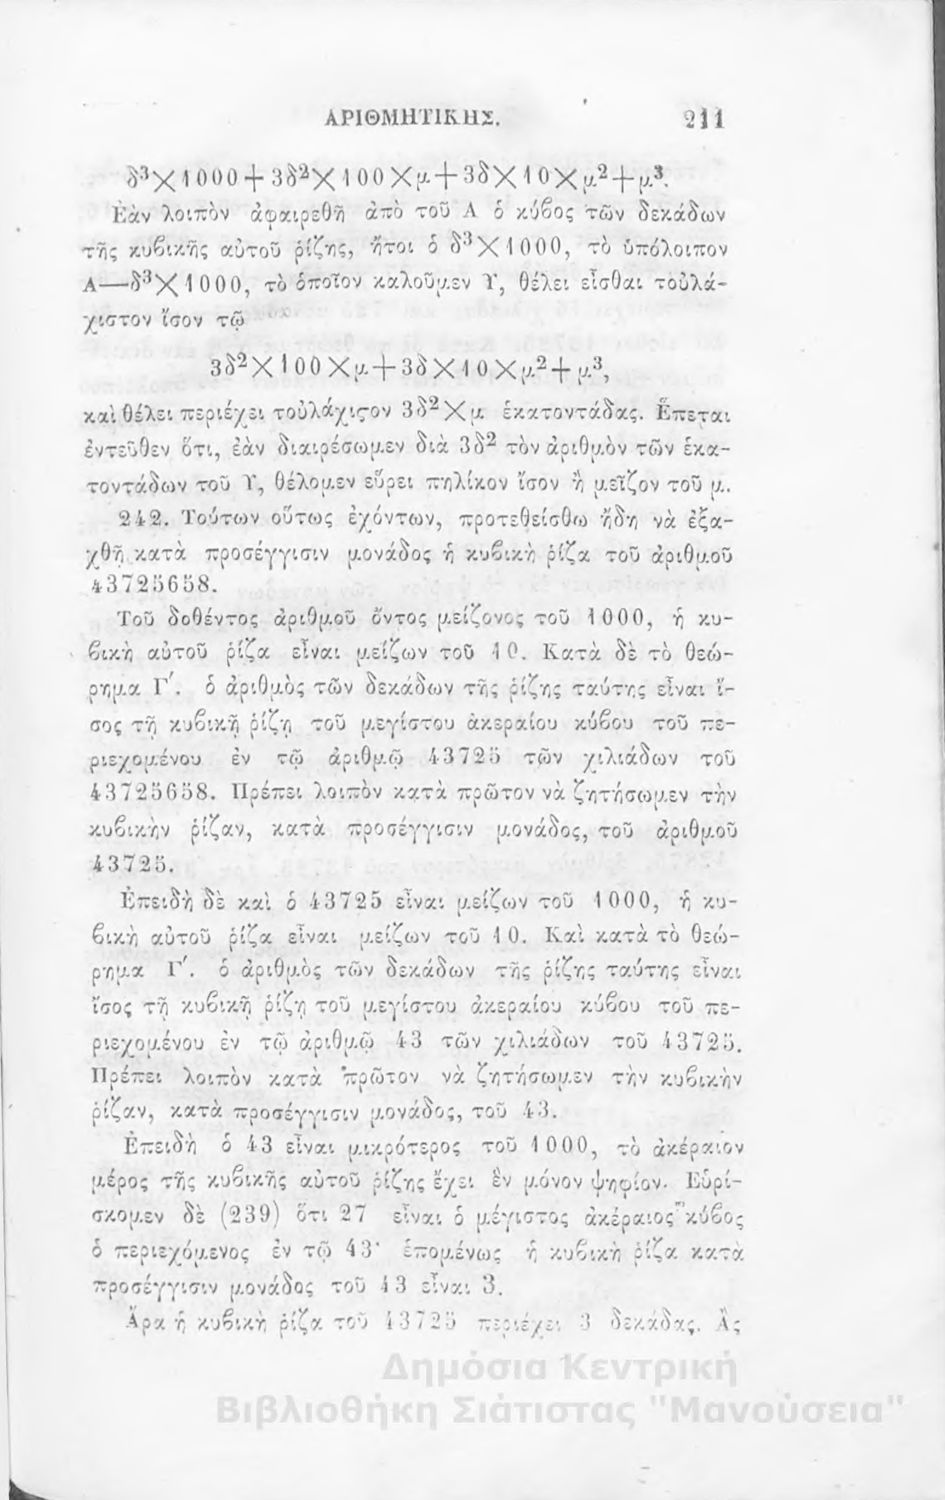 ΑΡΙΘΜΗΤΙΚΗΣ. 211
δ³×1000+3δ²×100×μ+3δ×10×μ²+μ³.
Ἐὰν λοιπὸν ἀφαιρεθῇ ἀπὸ τοῦ Α ὁ κύϐος τῶν δεκάδων
τῆς κυϐικῆς αὐτοῦ ῥίζης, ἤτοι ὁ δ³×1000, τὸ ὑπόλοιπον
Α—δ³×1000, τὸ ὁποῖον καλοῦμεν Υ, θέλει εἶσθαι τοὐλά-
χιστον ἴσον τῷ
3δ²×100×μ+3δ×10×μ²+μ³,
καὶ θέλει περιέχει τοὐλάχιϛον 3δ²×μ ἑκατοντάδας. Ἕπεται
ἐντεῦθεν ὅτι, ἐὰν διαιρέσωμεν διὰ 3δ² τὸν ἀριθμὸν τῶν ἑκα-
τοντάδων τοῦ Υ, θέλομεν εὕρει πηλίκον ἴσον ἢ μεῖζον τοῦ μ.
242. Τούτων οὕτως ἐχόντων, προτεθείσθω ἤδη νὰ ἐξα-
χθῇ κατὰ προσέγγισιν μονάδος ἡ κυϐικὴ ῥίζα τοῦ ἀριθμοῦ
43725658.
Τοῦ δοθέντος ἀριθμοῦ ὄντος μείζονος τοῦ 1000, ἡ κυ-
ϐικὴ αὐτοῦ ῥίζα εἶναι μείζων τοῦ 10. Κατὰ δὲ τὸ θεώ-
ρημα Γ′. ὁ ἀριθμὸς τῶν δεκάδων τῆς ῥίζης ταύτης εἶναι ἴ-
σος τῇ κυϐικῇ ῥίζῃ τοῦ μεγίστου ἀκεραίου κύϐου τοῦ πε-
ριεχομένου ἐν τῷ ἀριθμῷ 43725 τῶν χιλιάδων τοῦ
43725658. Πρέπει λοιπὸν κατὰ πρῶτον νὰ ζητήσωμεν τὴν
κυϐικὴν ῥίζαν, κατὰ προσέγγισιν μονάδος, τοῦ ἀριθμοῦ
43725.
Ἐπειδὴ δὲ καὶ ὁ 43725 εἶναι μείζων τοῦ 1000, ἡ κυ-
ϐικὴ αὐτοῦ ῥίζα εἶναι μείζων τοῦ 10. Καὶ κατὰ τὸ θεώ-
ρημα Γ′. ὁ ἀριθμὸς τῶν δεκάδων τῆς ῥίζης ταύτης εἶναι
ἴσος τῇ κυϐικῇ ῥίζῃ τοῦ μεγίστου ἀκεραίου κύϐου τοῦ πε-
ριεχομένου ἐν τῷ ἀριθμῷ 43 τῶν χιλιάδων τοῦ 43725.
Πρέπει λοιπὸν κατὰ πρῶτον νὰ ζητήσωμεν τὴν κυϐικὴν
ῥίζαν, κατὰ προσέγγισιν μονάδος, τοῦ 43.
Ἐπειδὴ ὁ 43 εἶναι μικρότερος τοῦ 1000, τὸ ἀκέραιον
μέρος τῆς κυϐικῆς αὐτοῦ ῥίζης ἔχει ἓν μόνον ψηφίον. Εὑρί-
σκομεν δὲ (239) ὅτι 27 εἶναι ὁ μέγιστος ἀκέραιος κύϐος
ὁ περιεχόμενος ἐν τῷ 43· ἑπομένως ἡ κυϐικὴ ῥίζα κατὰ
προσέγγισιν μονάδος τοῦ 43 εἶναι 3.
Ἄρα ἡ κυϐικὴ ῥίζα τοῦ 43725 περιέχει 3 δεκάδας. Ἂς
Δημόσια Κεντρική
Βιβλιοθήκη Σιάτιστας "Μανούσεια"